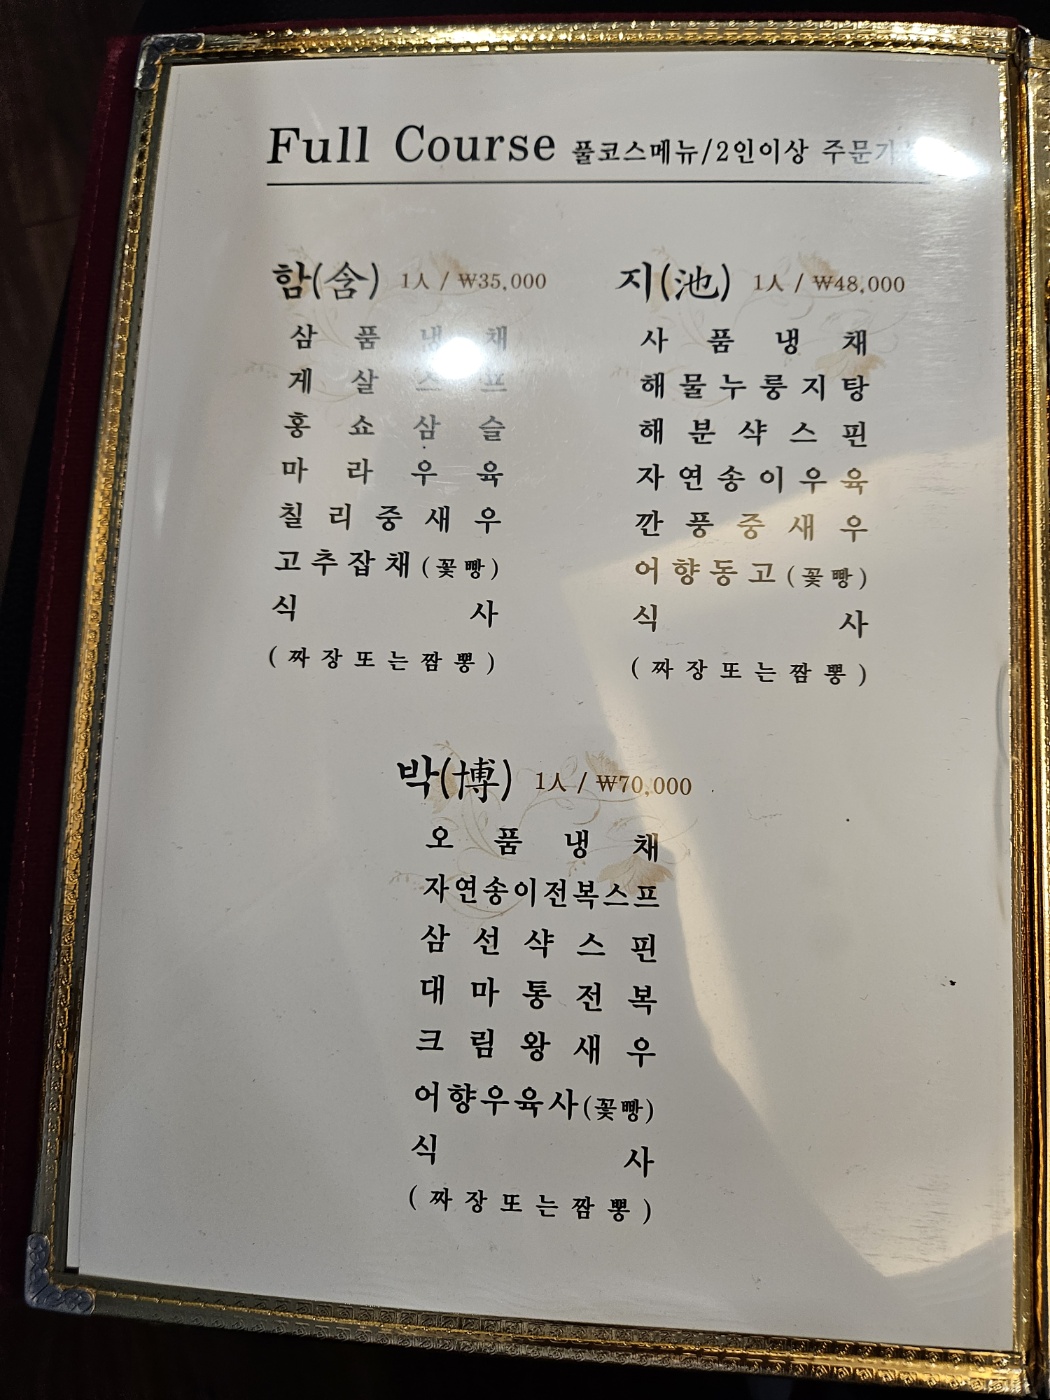 Full Course 풀코스메뉴/2인이상 주문
함(含) 1人 / ₩35,000
삼품냉채
게살스프
홍쇼삼슬
마라우육
칠리중새우
고추잡채(꽃빵)
식사
(짜장또는짬뽕)
지(池) 1人 / ₩48,000
사품냉채
해물누룽지탕
해분샥스핀
자연송이우육
깐풍중새우
어향동고(꽃빵)
식사
(짜장또는짬뽕)
박(博) 1人 / ₩70,000
오품냉채
자연송이전복스프
삼선샥스핀
대마통전복
크림왕새우
어향우육사(꽃빵)
식사
(짜장또는짬뽕)